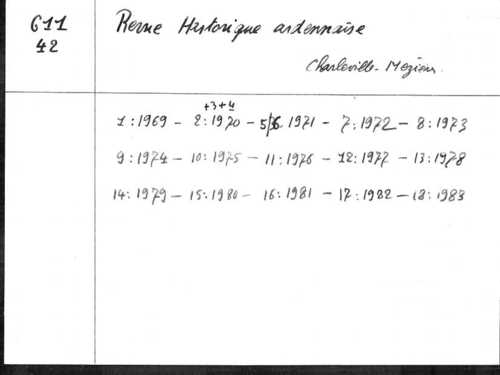 611 Revue Historique ardennaise
42
Charleville-Mézières
+3+4
1:1969 - 2:1970 - 5/6 1971 - 7:1972 - 8:1973
9:1974 - 10:1975 - 11:1976 - 12:1977 - 13:1978
14:1979 - 15:1980 - 16:1981 - 17:1982 - 18:1983